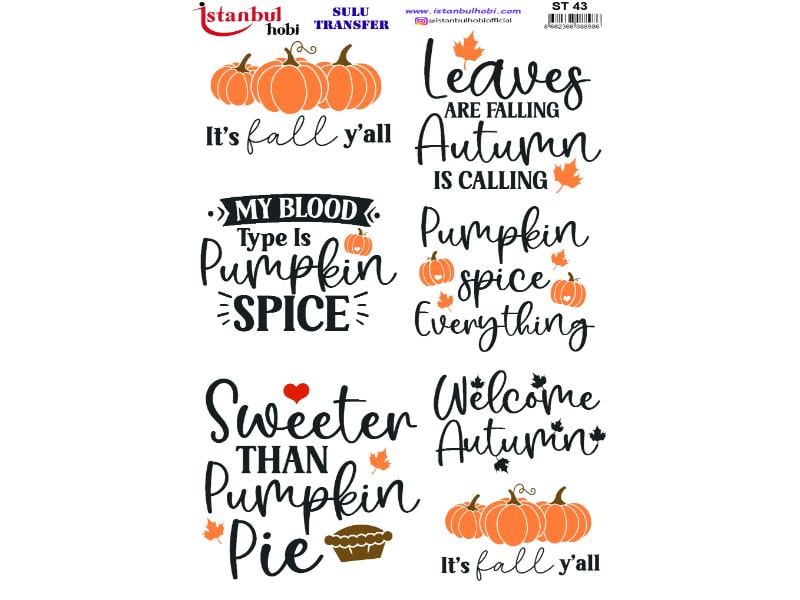 istanbul
hobi
SULU
TRANSFER
www.istanbulhobi.com
@istanbulhobiofficial
ST 43
8682366088986
It's fall y'all
Leaves
ARE FALLING
Autumn
IS CALLING
MY BLOOD
Type Is
Pumpkin
SPICE
Pumpkin
spice
Everything
Sweeter
THAN
Pumpkin
Pie
Welcome
Autumn
It's fall y'all